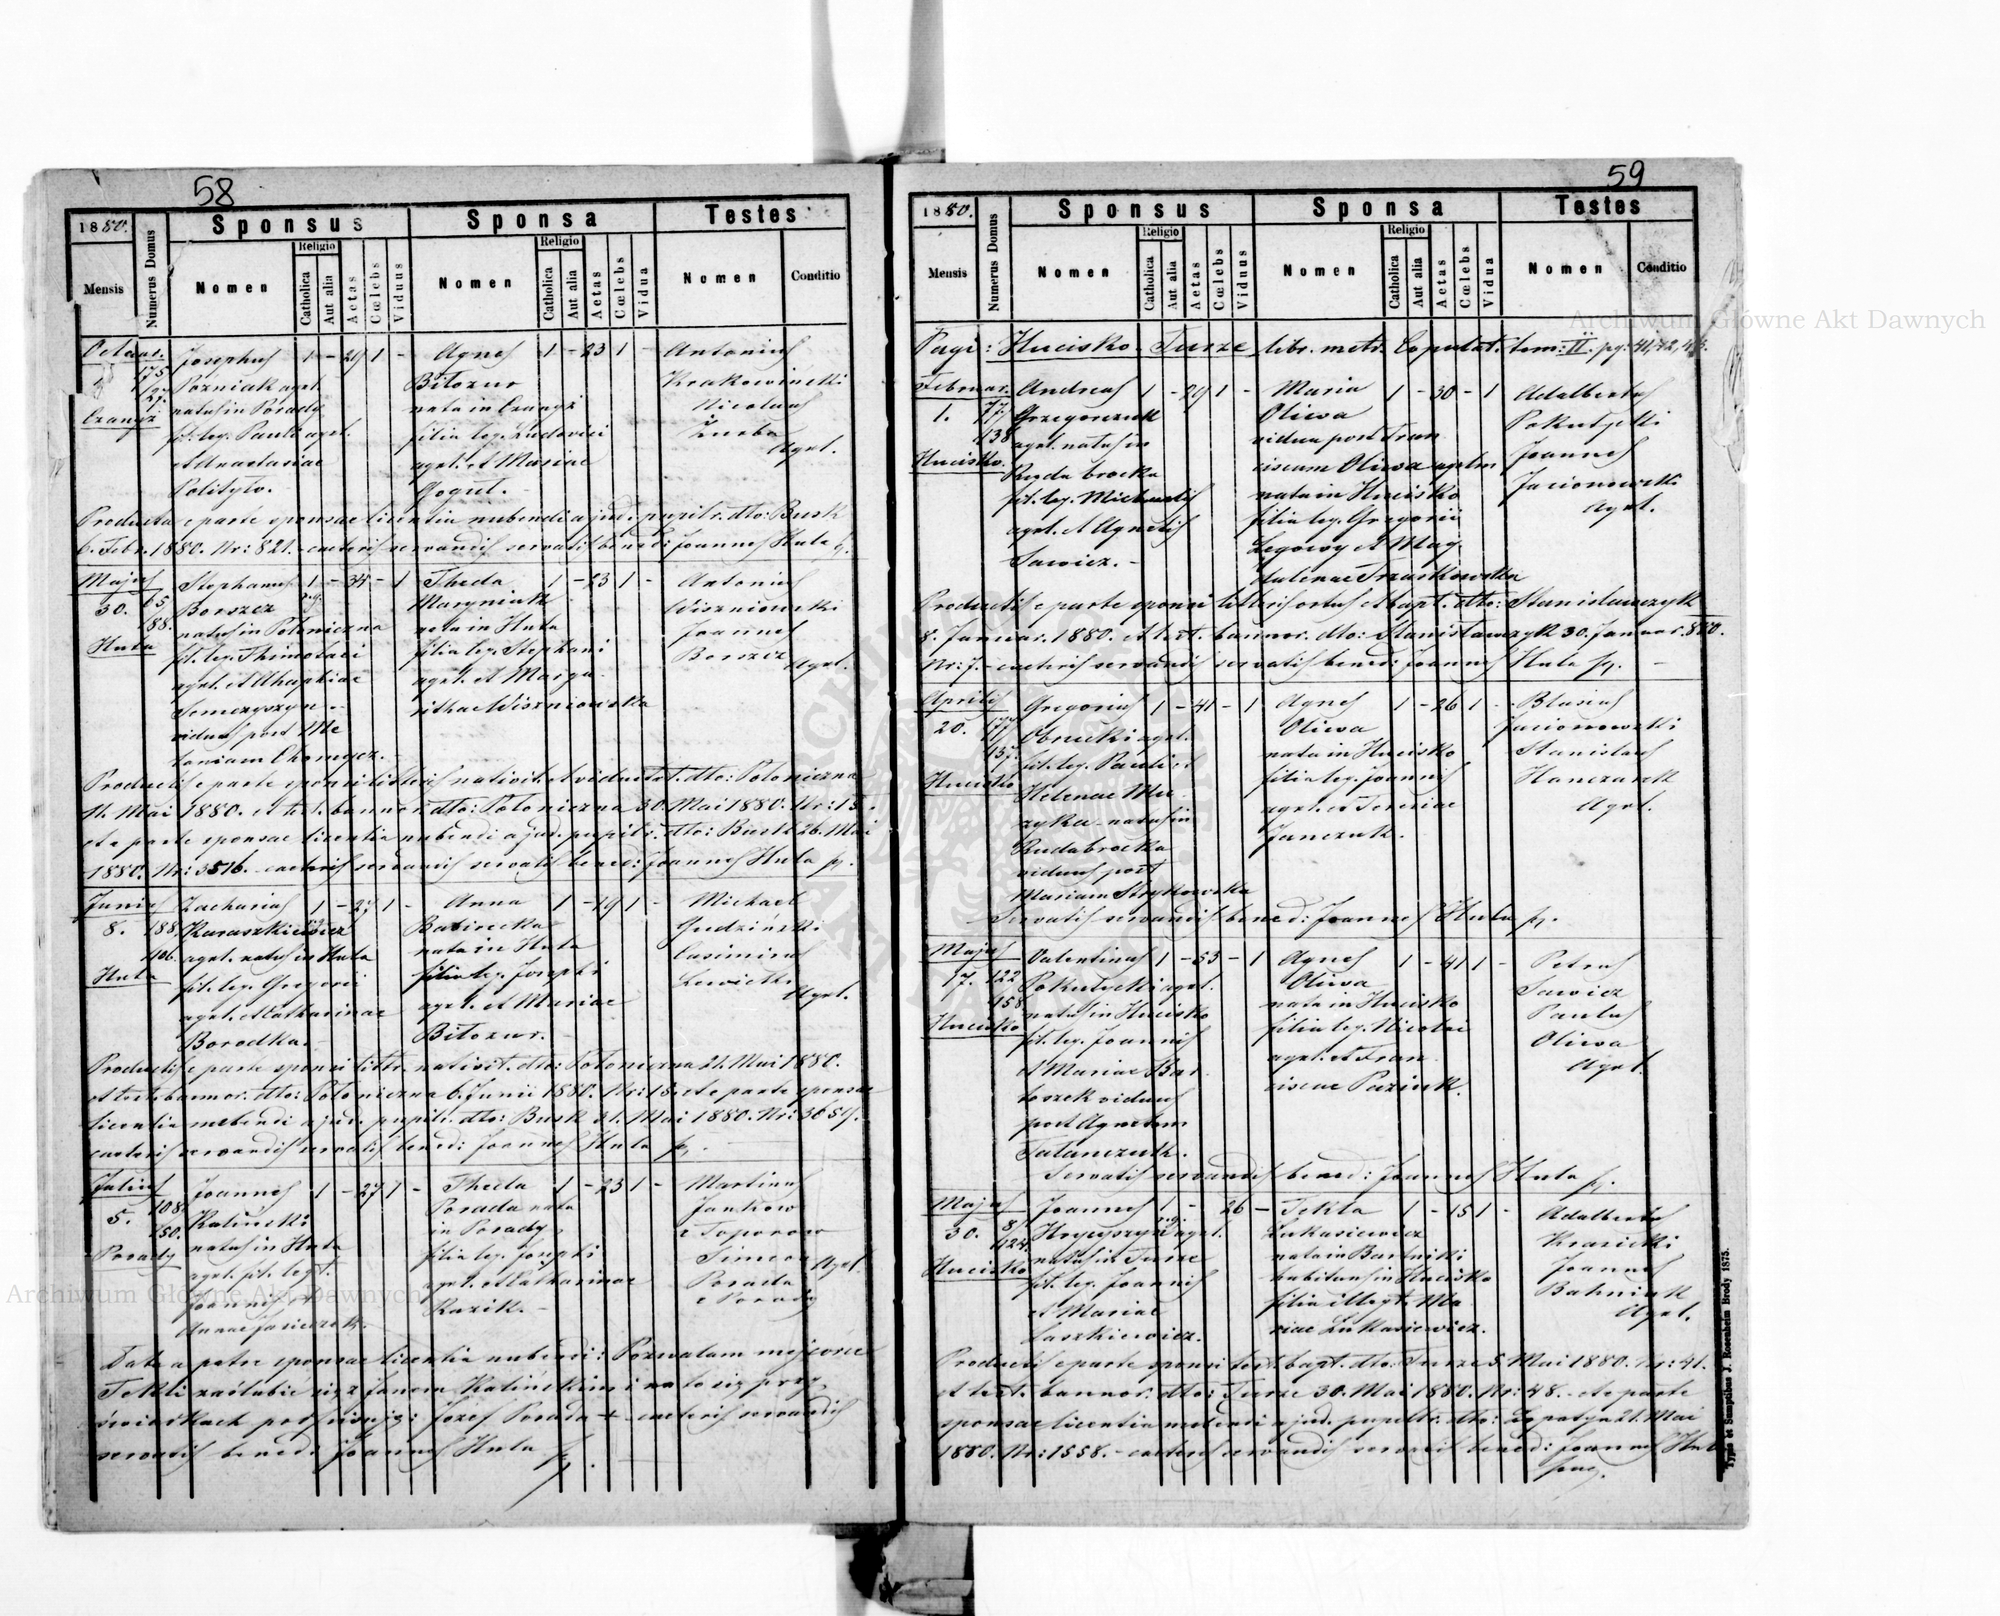 58
1880.
Mensis
Numerus Domus
Sponsus
Nomen
Religio
Catholica
Aut alia
Aetas
Cœlebs
Viduus
Sponsa
Nomen
Religio
Catholica
Aut alia
Aetas
Cœlebs
Vidua
Testes
Nomen
Conditio
Josephus 1 - 29 1 -
Pozniak agrl.
natus in Porady
fil. leg. Pauli agrl.
et Anastasiae
Polityło.
Agnes 1 - 23 1 -
Bitozur
nata in
filia leg. Ludovici
agrl. et Mariae
Gogut.
Antonius
Krakowiński
Nicolaus
Agrl.
Producta e parte sponsae licentia nubendi a jud. pupilr. dto: Busk
6. Febr. 1880. Nr: 821. - caeteris servandis servatis bened: Joannes Huta
Majus
30.
65
188.
Huta
Stephanus 1 - 34 - 1
Borszcz
natus in Połoniczna
fil. leg. Thimothei
agrl. et Ahaphiae
Semczyszyn -
viduus post Me
laniam
Thecla 1 - 23 1 -
Maryniak
nata in Huta
filia leg. Stephani
agrl. et Marga
rithae Wiszniowska
Antonius
Wiszniowski
Joannes
Borszcz
Agrl.
Productis e parte sponsi litteris nativit. et viduitat. dto: Połoniczna
11. Mai 1880. et test. bannor. dto: Połoniczna 30. Mai 1880. Nr: 15.
et e parte sponsae licentia nubendi a jud. pupilr. dto: Busk 26. Mai
1880. Nr: 3516. - caeteris servandis servatis bened: Joannes Huta
Junius
8.
188.
106.
Huta
Zacharias 1 - 27 1 -
Karaszkiewicz
agrl. natus in Huta
fil. leg. Gregorii
agrl. et Catharinae
Borodka. -
Anna 1 - 19 1 -
nata in Huta
filia leg. Josephi
agrl. et Mariae
Bitozur. -
Michael
Gudziński
Casimirus
Lewicki
Agrl.
Productis e parte sponsi littr. nativit. dto: Połoniczna 21. Mai 1880.
et test. bannor. dto: Połoniczna 6. Junii 1880. Nr: 18. et e parte sponsae
licentia nubendi a jud. pupilr. dto: Busk 31. Mai 1880. Nr: 3659.
caeteris servandis servatis bened: Joannes Huta
Julius
5.
108.
150.
Porady
Joannes 1 - 27 1 -
Kaliński
natus in Huta
agrl. fil. legt.
Joannis et
Annae
Thecla 1 - 23 1 -
Porada nata
in Porady
filia leg. Josephi
agrl. et Catharinae
Kazik. -
Martinus
Jankow
z Toporow
Simeon Agrl.
Porada
z Porady
Data a patre sponsae licentia nubendi: Pozwalam mojej córce
Tekli zaślubić się z Janem Kalińskim i na to się przy
świadkach podpisuję: Józef Porada + caeteris servandis
servatis bened: Joannes Huta
59
1880.
Mensis
Numerus Domus
Sponsus
Nomen
Religio
Catholica
Aut alia
Aetas
Cœlebs
Viduus
Sponsa
Nomen
Religio
Catholica
Aut alia
Aetas
Cœlebs
Vidua
Testes
Nomen
Conditio
Pagi: Hucisko Turze libr. metr. Copulat. tom: II. pg: 41, 42,
Februar.
1.
77.
138
Hucisko.
Andreas 1 - 29 1 -
Grzegorczuk
agrl. natus in
Ruda brocka
fil. leg. Michaelis
agrl. et Agnetis
Sawicz. -
Maria 1 - 30 - 1
Oliwa
vidua post Fran
ciscum Oliwa agrlm
nata in Hucisko
filia leg. Gregorii
Legowy et Mag
dalenae Trzaskowska
Adalbertus
Pokutycki
Joannes
Jacionowski
Agrl.
Productis e parte sponsi litteris ortus et bapt. dto: Stanisławczyk
8. Januar. 1880. et test. bannor. dto: Stanisławczyk 30. Januar. 880.
Nr: 7. - caeteris servandis servatis bened: Joannes Huta
Aprilis
20.
177
157.
Hucisko
Gregorius 1 - 41 - 1
Obrucki agrl.
fil. leg. Pauli et
Helenae Mu
zyka - natus in
Rudabrocka
viduus post
Mariam Strykowska
Agnes 1 - 26 1 -
Oliwa
nata in Hucisko
filia leg. Joannis
agrl. et Teresiae
Janczuk.
Blasius
Jacionowski
Stanislaus
Hanczaruk
Agrl.
Servatis servandis bened: Joannes Huta
Majus
17.
122
158.
Hucisko
Valentinus 1 - 53 - 1
Pokutycki agrl.
natus in Hucisko
fil. leg. Joannis
et Mariae Bar
toszek viduus
post Agnetem
Agnes 1 - 41 1 -
Oliwa
nata in Hucisko
filia leg. Nicolai
agrl. et Fran
ciscae Paziuk.
Petrus
Sawicz
Paulus
Oliwa
Agrl.
Servatis servandis bened: Joannes Huta
Majus
30.
8/
124.
Hucisko
Joannes 1 - 26 -
Hryciszyn agrl.
natus in Turze
fil. leg. Joannis
et Mariae
Laszkiewicz.
Tekla 1 - 15 1 -
Łukasiewicz
nata in Bartniki
habitans in Hucisko
filia illegt. Ma
riae Łukasiewicz.
Adalbertus
Krasicki
Joannes
Bahniuk
Agrl.
Productis e parte sponsi test. bapt. dto: Turze 5. Mai 1880. Nr: 41.
et test. bannor. dto: Turze 30. Mai 1880. Nr: 48. - et e parte
sponsae licentia nubendi a jud. pupill. dto: Łopatyn 21. Mai
1880. Nr: 1558. - caeteris servandis servatis bened: Joannes Huta
Typis et Sumptibus J. Rosenheim Brody 1875.
Archiwum Główne Akt Dawnych
Archiwum Główne Akt Dawnych